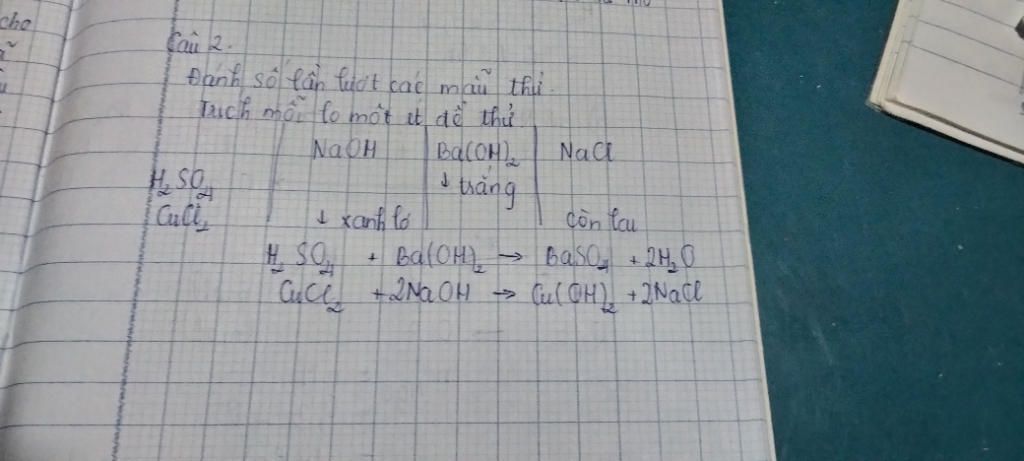 cho
Câu 2.
Đánh số lần lượt các mẫu thử.
Trích mỗi lọ một ít để thử
NaOH Ba(OH)₂ NaCl
H₂SO₄ ↓ trắng
CuCl₂ ↓ xanh lơ còn lại
H₂SO₄ + Ba(OH)₂ → BaSO₄ + 2H₂O
CuCl₂ + 2NaOH → Cu(OH)₂ + 2NaCl